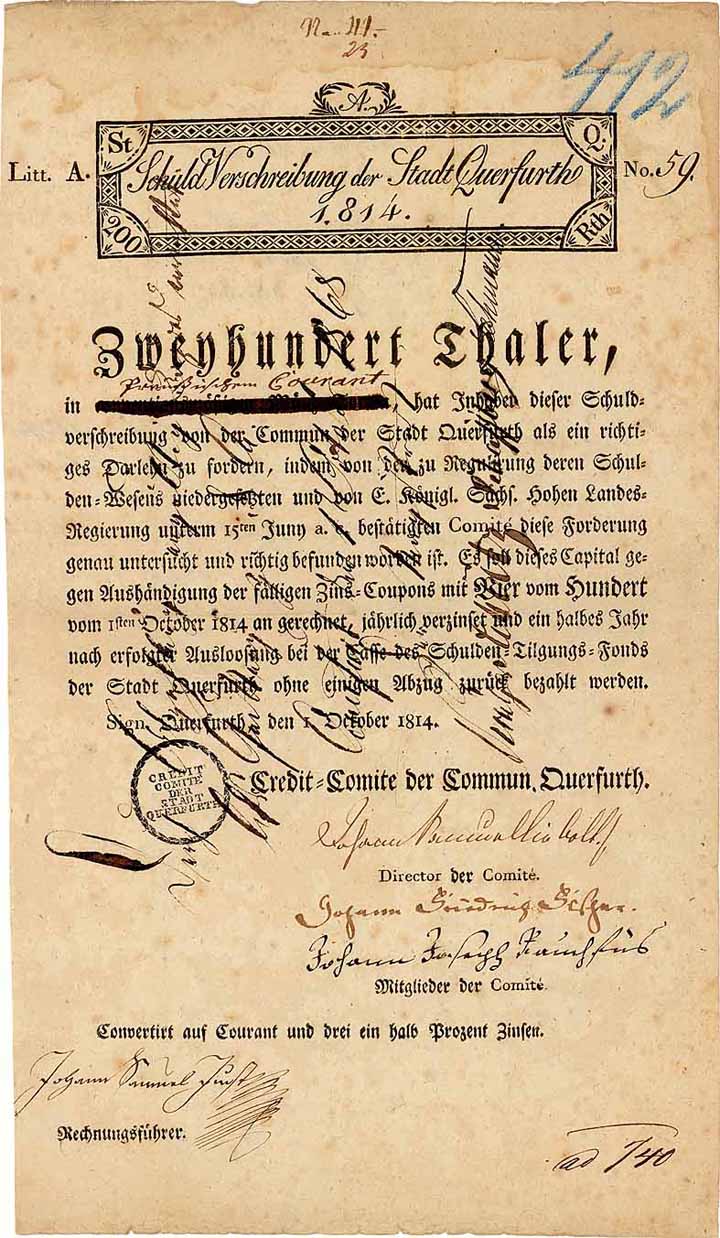 No. 41.
23
412
A.
St.
Q.
Litt. A.
Schuld Verschreibung der Stadt Querfurth
No. 59.
1.814.
200
Rth
68
Zweyhundert Thaler,
Preußischem Courant
in hat Inhaber dieser Schuld-
verschreibung von der Commun der Stadt Querfurth als ein richti-
ges Darlehn zu fordern, indem von den zu Regulirung deren Schul-
den-Wesens niedergesetzten und von E. Königl. Sächs. Hohen Landes-
Regierung unterm 15ten Juny a. c. bestätigten Comité diese Forderung
genau untersucht und richtig befunden worden ist. Es soll dieses Capital ge-
gen Aushändigung der fälligen Zins-Coupons mit Vier vom Hundert
vom 1sten October 1814 an gerechnet, jährlich verzinset und ein halbes Jahr
nach erfolgter Ausloosung bei der Casse des Schulden-Tilgungs-Fonds
der Stadt Querfurth ohne einigen Abzug zurück bezahlt werden.
Sign. Querfurth, den 1. October 1814.
CREDIT
COMITE
DER
STADT
QUERFURTH
Credit-Comite der Commun, Querfurth.
Johann Samuel
Director der Comité.
Johann Friedrich
Johann Joseph Rauchfus
Mitglieder der Comité.
Convertirt auf Courant und drei ein halb Prozent Zinsen.
Johann Samuel Just
Rechnungsführer.
ad 740